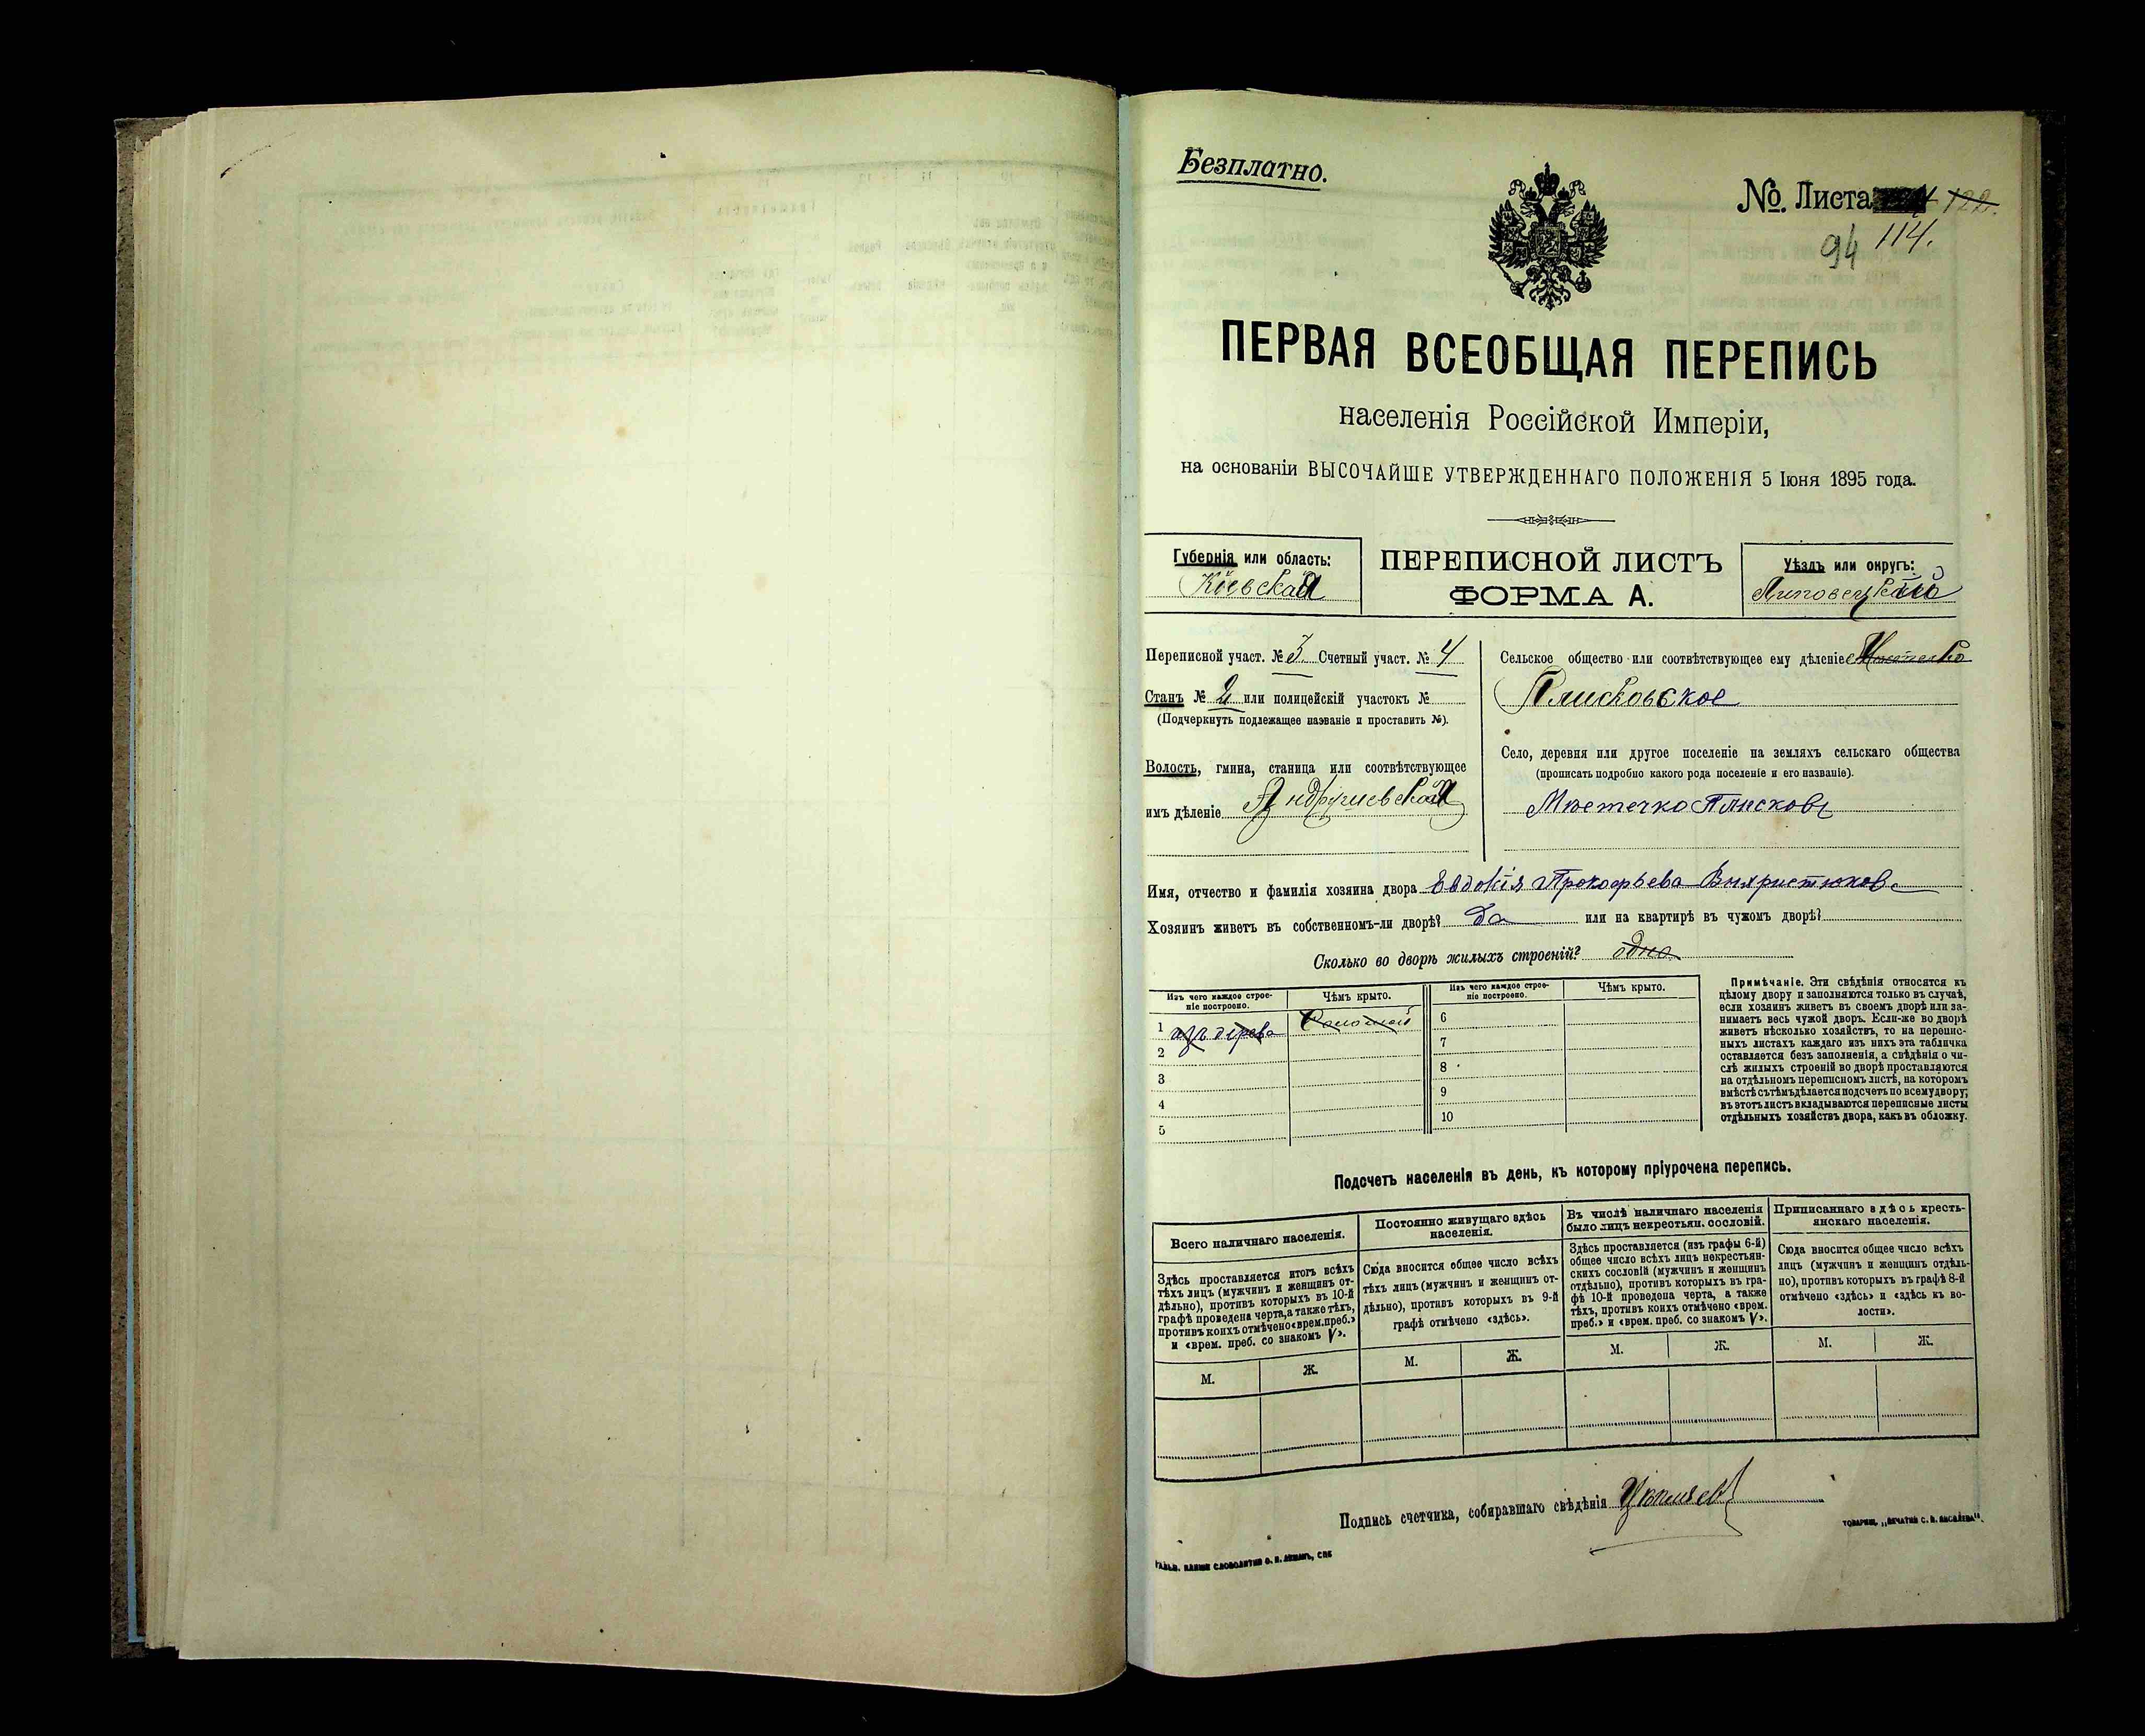 Безплатно.
№ Листа 122.
94 114.
ПЕРВАЯ ВСЕОБЩАЯ ПЕРЕПИСЬ
населенія Россійской Имперіи,
на основаніи ВЫСОЧАЙШЕ УТВЕРЖДЕННАГО ПОЛОЖЕНІЯ 5 Іюня 1895 года.
Губернія или область:
Кіевская
ПЕРЕПИСНОЙ ЛИСТЪ
ФОРМА А.
Уѣздъ или округъ:
Липовецкій
Переписной участ. № 3. Счетный участ. № 4
Станъ № 2 или полицейскій участокъ №
(Подчеркнуть подлежащее названіе и проставить №).
Волость, гмина, станица или соотвѣтствующее
имъ дѣленіе Андрушевская
Сельское общество или соотвѣтствующее ему дѣленіе
Плисковское
Село, деревня или другое поселеніе на земляхъ сельскаго общества
(прописать подробно какого рода поселеніе и его названіе).
Мѣстечко Плисковъ
Имя, отчество и фамилія хозяина двора Евдокія Прокофьева
Хозяинъ живетъ въ собственномъ-ли дворѣ? да или на квартирѣ въ чужомъ дворѣ?
Сколько во дворѣ жилыхъ строеній? одно
Изъ чего каждое строе-
ніе построено.
Чѣмъ крыто.
Изъ чего каждое строе-
ніе построено.
Чѣмъ крыто.
1 изъ дерева Соломой
2
3
4
5
6
7
8
9
10
Примѣчаніе. Эти свѣдѣнія относятся къ
цѣлому двору и заполняются только въ случаѣ,
если хозяинъ живетъ въ своемъ дворѣ или за-
нимаетъ весь чужой дворъ. Если-же во дворѣ
живетъ нѣсколько хозяйствъ, то на перепис-
ныхъ листахъ каждаго изъ нихъ эта табличка
оставляется безъ заполненія, а свѣдѣнія о чи-
слѣ жилыхъ строеній во дворѣ проставляются
на отдѣльномъ переписномъ листѣ, на которомъ
вмѣстѣ съ тѣмъ дѣлается подсчетъ по всему двору;
въ этотъ листъ вкладываются переписные листы
отдѣльныхъ хозяйствъ двора, какъ въ обложку.
Подсчетъ населенія въ день, къ которому пріурочена перепись.
Всего наличнаго населенія.
Здѣсь проставляется итогъ всѣхъ
тѣхъ лицъ (мужчинъ и женщинъ от-
дѣльно), противъ которыхъ въ 10-й
графѣ проведена черта, а также тѣхъ,
противъ коихъ отмѣчено «врем. преб.»
и «врем. преб. со знакомъ V».
М. Ж.
Постоянно живущаго здѣсь
населенія.
Сюда вносится общее число всѣхъ
тѣхъ лицъ (мужчинъ и женщинъ от-
дѣльно), противъ которыхъ въ 9-й
графѣ отмѣчено «здѣсь».
М. Ж.
Въ числѣ наличнаго населенія
было лицъ некрестьян. сословій.
Здѣсь проставляется (изъ графы 6-й)
общее число всѣхъ лицъ некрестьян-
скихъ сословій (мужчинъ и женщинъ
отдѣльно), противъ которыхъ въ гра-
фѣ 10-й проведена черта, а также
тѣхъ, противъ коихъ отмѣчено «врем.
преб.» и «врем. преб. со знакомъ V».
М. Ж.
Приписаннаго здѣсь кресть-
янскаго населенія.
Сюда вносится общее число всѣхъ
лицъ (мужчинъ и женщинъ отдѣль-
но), противъ которыхъ въ графѣ 8-й
отмѣчено «здѣсь» и «здѣсь къ во-
лости».
М. Ж.
Подпись счетчика, собиравшаго свѣдѣнія